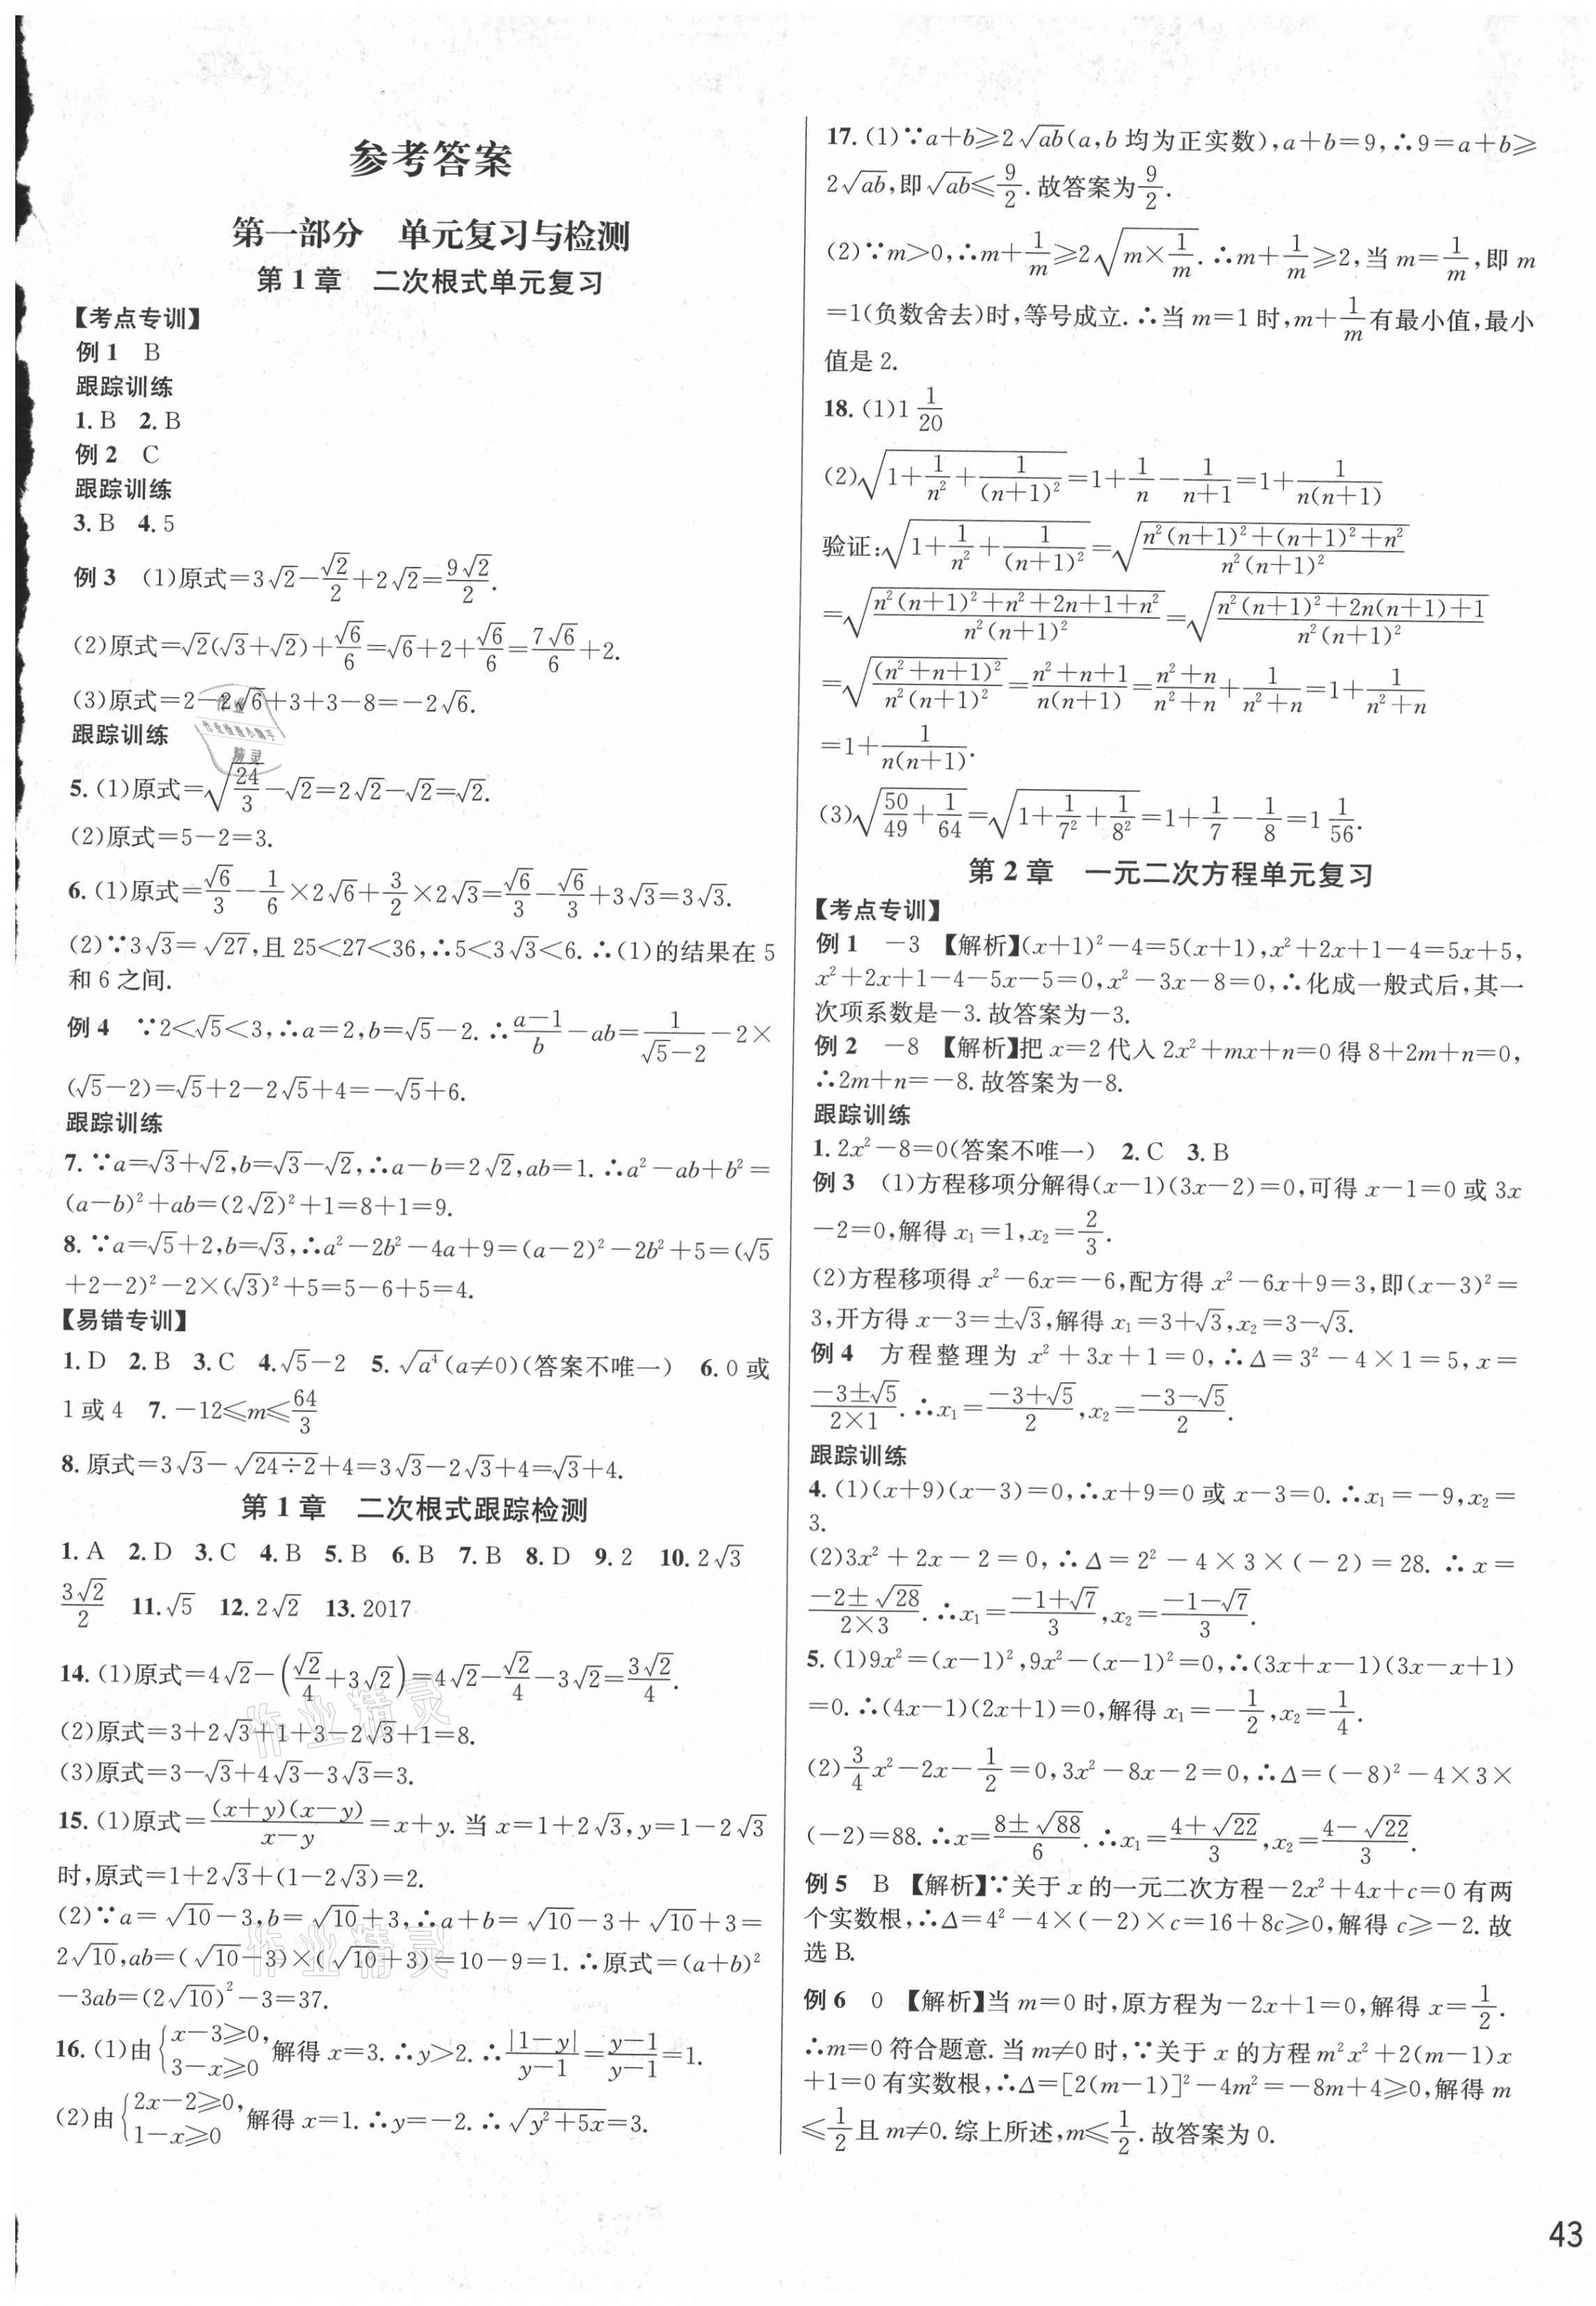 参考答案
第一部分 单元复习与检测
第1章 二次根式单元复习
【考点专训】
例1 B
跟踪训练
1. B 2. B
例2 C
跟踪训练
3. B 4. 5
例3 (1)原式=3√2-√2/2+2√2=9√2/2.
(2)原式=√2(√3+√2)+√6/6=√6+2+√6/6=7√6/6+2.
(3)原式=2-2√6+3+3-8=-2√6.
跟踪训练
5. (1)原式=√(24/3)-√2=2√2-√2=√2.
(2)原式=5-2=3.
6. (1)原式=√6/3-1/6×2√6+3/2×2√3=√6/3-√6/3+3√3=3√3.
(2)∵3√3=√27,且25<27<36,∴5<3√3<6.∴(1)的结果在5
和6之间.
例4 ∵2<√5<3,∴a=2,b=√5-2.∴(a-1)/b-ab=1/(√5-2)-2×
(√5-2)=√5+2-2√5+4=-√5+6.
跟踪训练
7. ∵a=√3+√2,b=√3-√2,∴a-b=2√2,ab=1.∴a²-ab+b²=
(a-b)²+ab=(2√2)²+1=8+1=9.
8. ∵a=√5+2,b=√3,∴a²-2b²-4a+9=(a-2)²-2b²+5=(√5
+2-2)²-2×(√3)²+5=5-6+5=4.
【易错专训】
1. D 2. B 3. C 4. √5-2 5. √a⁴(a≠0)(答案不唯一) 6. 0或
1或4 7. -12≤m≤64/3
8. 原式=3√3-√(24÷2)+4=3√3-2√3+4=√3+4.
第1章 二次根式跟踪检测
1. A 2. D 3. C 4. B 5. B 6. B 7. B 8. D 9. 2 10. 2√3
3√2/2 11. √5 12. 2√2 13. 2017
14. (1)原式=4√2-(√2/4+3√2)=4√2-√2/4-3√2=3√2/4.
(2)原式=3+2√3+1+3-2√3+1=8.
(3)原式=3-√3+4√3-3√3=3.
15. (1)原式=(x+y)(x-y)/(x-y)=x+y.当x=1+2√3,y=1-2√3
时,原式=1+2√3+(1-2√3)=2.
(2)∵a=√10-3,b=√10+3,∴a+b=√10-3+√10+3=
2√10,ab=(√10-3)×(√10+3)=10-9=1.∴原式=(a+b)²
-3ab=(2√10)²-3=37.
16. (1)由{x-3≥0, 3-x≥0 解得x=3.∴y>2.∴|1-y|/(y-1)=(y-1)/(y-1)=1.
(2)由{2x-2≥0, 1-x≥0 解得x=1.∴y=-2.∴√(y²+5x)=3.
17. (1)∵a+b≥2√ab(a,b均为正实数),a+b=9,∴9=a+b≥
2√ab,即√ab≤9/2.故答案为9/2.
(2)∵m>0,∴m+1/m≥2√(m×1/m).∴m+1/m≥2,当m=1/m,即m
=1(负数舍去)时,等号成立.∴当m=1时,m+1/m有最小值,最小
值是2.
18. (1)1 1/20
(2)√(1+1/n²+1/(n+1)²)=1+1/n-1/(n+1)=1+1/n(n+1)
验证:√(1+1/n²+1/(n+1)²)=√((n²(n+1)²+(n+1)²+n²)/n²(n+1)²)
=√((n²(n+1)²+n²+2n+1+n²)/n²(n+1)²)=√((n²(n+1)²+2n(n+1)+1)/n²(n+1)²)
=√((n²+n+1)²/n²(n+1)²)=(n²+n+1)/n(n+1)=(n²+n)/(n²+n)+1/(n²+n)=1+1/(n²+n)
=1+1/n(n+1).
(3)√(50/49+1/64)=√(1+1/7²+1/8²)=1+1/7-1/8=1 1/56.
第2章 一元二次方程单元复习
【考点专训】
例1 -3 【解析】(x+1)²-4=5(x+1),x²+2x+1-4=5x+5,
x²+2x+1-4-5x-5=0,x²-3x-8=0,∴化成一般式后,其一
次项系数是-3.故答案为-3.
例2 -8 【解析】把x=2代入2x²+mx+n=0得8+2m+n=0,
∴2m+n=-8.故答案为-8.
跟踪训练
1. 2x²-8=0(答案不唯一) 2. C 3. B
例3 (1)方程移项分解得(x-1)(3x-2)=0,可得x-1=0或3x
-2=0,解得x₁=1,x₂=2/3.
(2)方程移项得x²-6x=-6,配方得x²-6x+9=3,即(x-3)²=
3,开方得x-3=±√3,解得x₁=3+√3,x₂=3-√3.
例4 方程整理为x²+3x+1=0,∴Δ=3²-4×1=5,x=
(-3±√5)/(2×1).∴x₁=(-3+√5)/2,x₂=(-3-√5)/2.
跟踪训练
4. (1)(x+9)(x-3)=0,∴x+9=0或x-3=0.∴x₁=-9,x₂=
3.
(2)3x²+2x-2=0,∴Δ=2²-4×3×(-2)=28.∴x=
(-2±√28)/(2×3).∴x₁=(-1+√7)/3,x₂=(-1-√7)/3.
5. (1)9x²=(x-1)²,9x²-(x-1)²=0,∴(3x+x-1)(3x-x+1)
=0.∴(4x-1)(2x+1)=0,解得x₁=-1/2,x₂=1/4.
(2)3/4x²-2x-1/2=0,3x²-8x-2=0,∴Δ=(-8)²-4×3×
(-2)=88.∴x=(8±√88)/6.∴x₁=(4+√22)/3,x₂=(4-√22)/3.
例5 B 【解析】∵关于x的一元二次方程-2x²+4x+c=0有两
个实数根,∴Δ=4²-4×(-2)×c=16+8c≥0,解得c≥-2.故
选B.
例6 0 【解析】当m=0时,原方程为-2x+1=0,解得x=1/2.
∴m=0符合题意.当m≠0时,∵关于x的方程m²x²+2(m-1)x
+1=0有实数根,∴Δ=[2(m-1)]²-4m²=-8m+4≥0,解得m
≤1/2且m≠0.综上所述,m≤1/2.故答案为0.
43